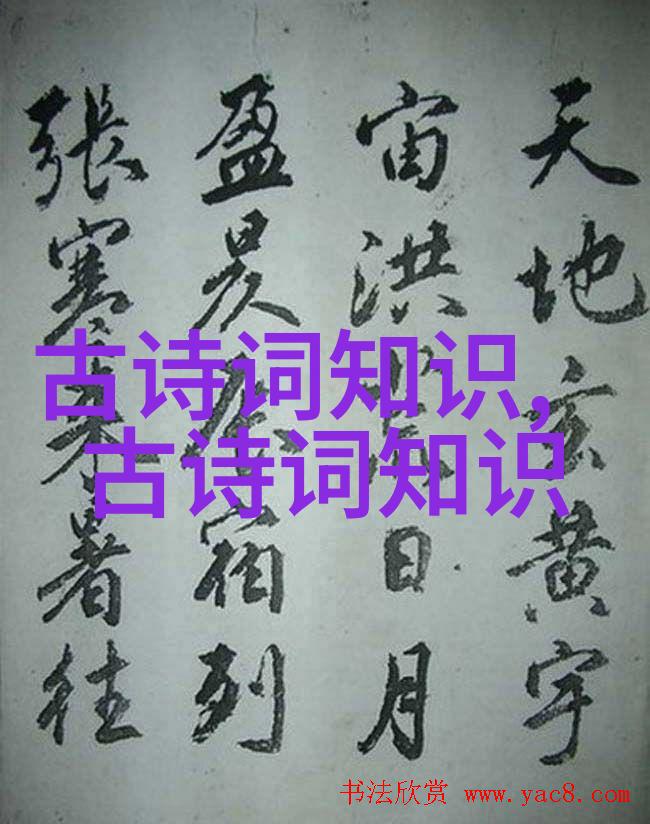 天地玄黄宇
宙洪荒日月
盈昃辰宿列
張寒来暑往
古诗词知识,
古诗词知识
书法欣赏 www.yac8.com